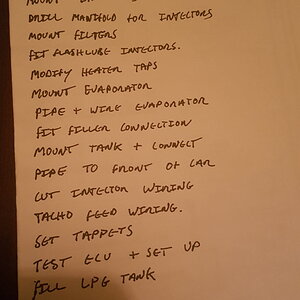 MOUNT
DRILL MANIFOLD FOR INJECTORS
MOUNT FILTERS
FIT FLASHLUBE INJECTORS.
MODIFY HEATER TAPS
MOUNT EVAPORATOR
PIPE + WIRE EVAPORATOR
FIT FILLER CONNECTION
MOUNT TANK + CONNECT
PIPE TO FRONT OF CAR
CUT INJECTOR WIRING
TACHO FEED WIRING.
SET TAPPETS
TEST ECU + SET UP
FILL LPG TANK